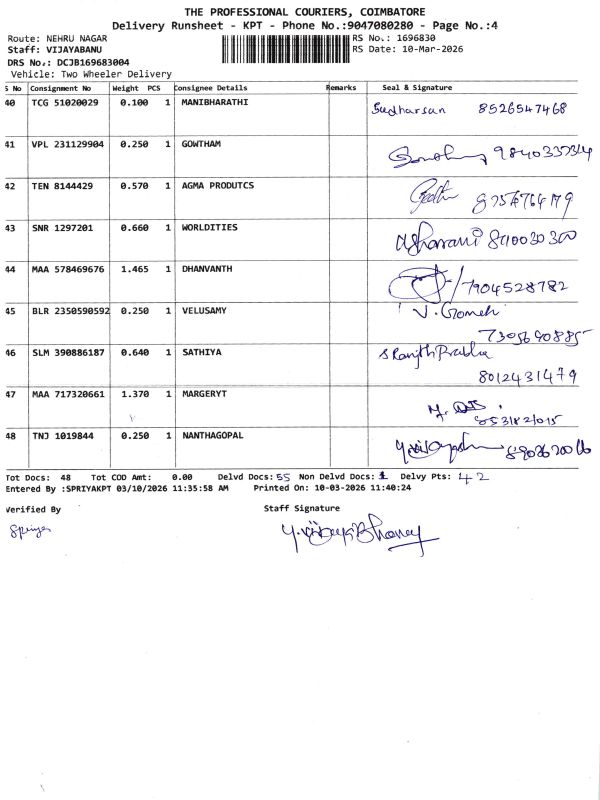 THE PROFESSIONAL COURIERS, COIMBATORE
Delivery Runsheet - KPT - Phone No.:9047080280 - Page No.:4
Route: NEHRU NAGAR
RS No.: 1696830
Staff: VIJAYABANU
RS Date: 10-Mar-2026
DRS No.: DCJB169683004
Vehicle: Two Wheeler Delivery
S No Consignment No Weight PCS Consignee Details Remarks Seal & Signature
40 TCG 51020029 0.100 1 MANIBHARATHI Sudharsan 8526547468
41 VPL 231129904 0.250 1 GOWTHAM
42 TEN 8144429 0.570 1 AGMA PRODUTCS
43 SNR 1297201 0.660 1 WORLDITIES
44 MAA 578469676 1.465 1 DHANVANTH 7904528782
45 BLR 2350590592 0.250 1 VELUSAMY
46 SLM 390886187 0.640 1 SATHIYA S Ranjith Prabhu
8012431479
47 MAA 717320661 1.370 1 MARGERYT
48 TNJ 1019844 0.250 1 NANTHAGOPAL
Tot Docs: 48 Tot COD Amt: 0.00 Delvd Docs: 55 Non Delvd Docs: 1 Delvy Pts: 42
Entered By :SPRIYAKPT 03/10/2026 11:35:58 AM Printed On: 10-03-2026 11:40:24
Verified By Staff Signature